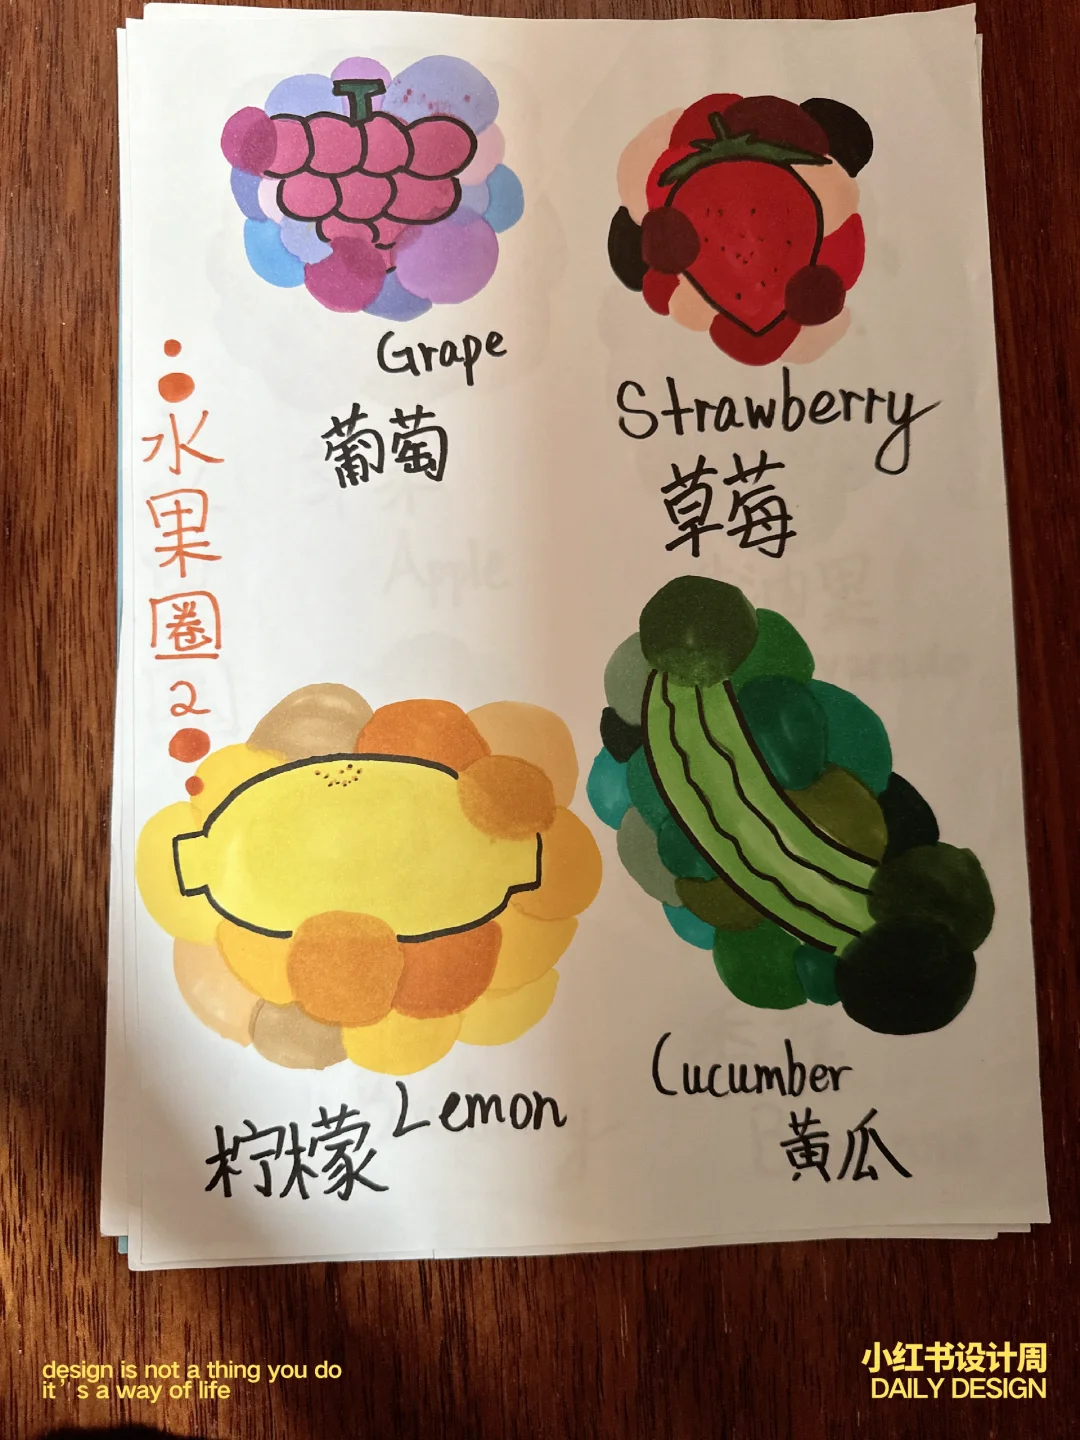 Grape
葡萄
Strawberry
草莓
水果圈2
Lemon
柠檬
Cucumber
黄瓜
design is not a thing you do
it's a way of life
小红书设计周
DAILY DESIGN